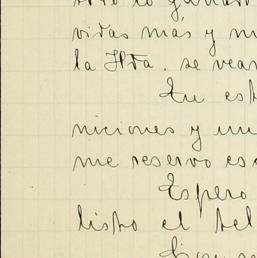 vidas más y m
la Hda. se vean
En est
niciones y un
me reservo es
Espero
listo el tel